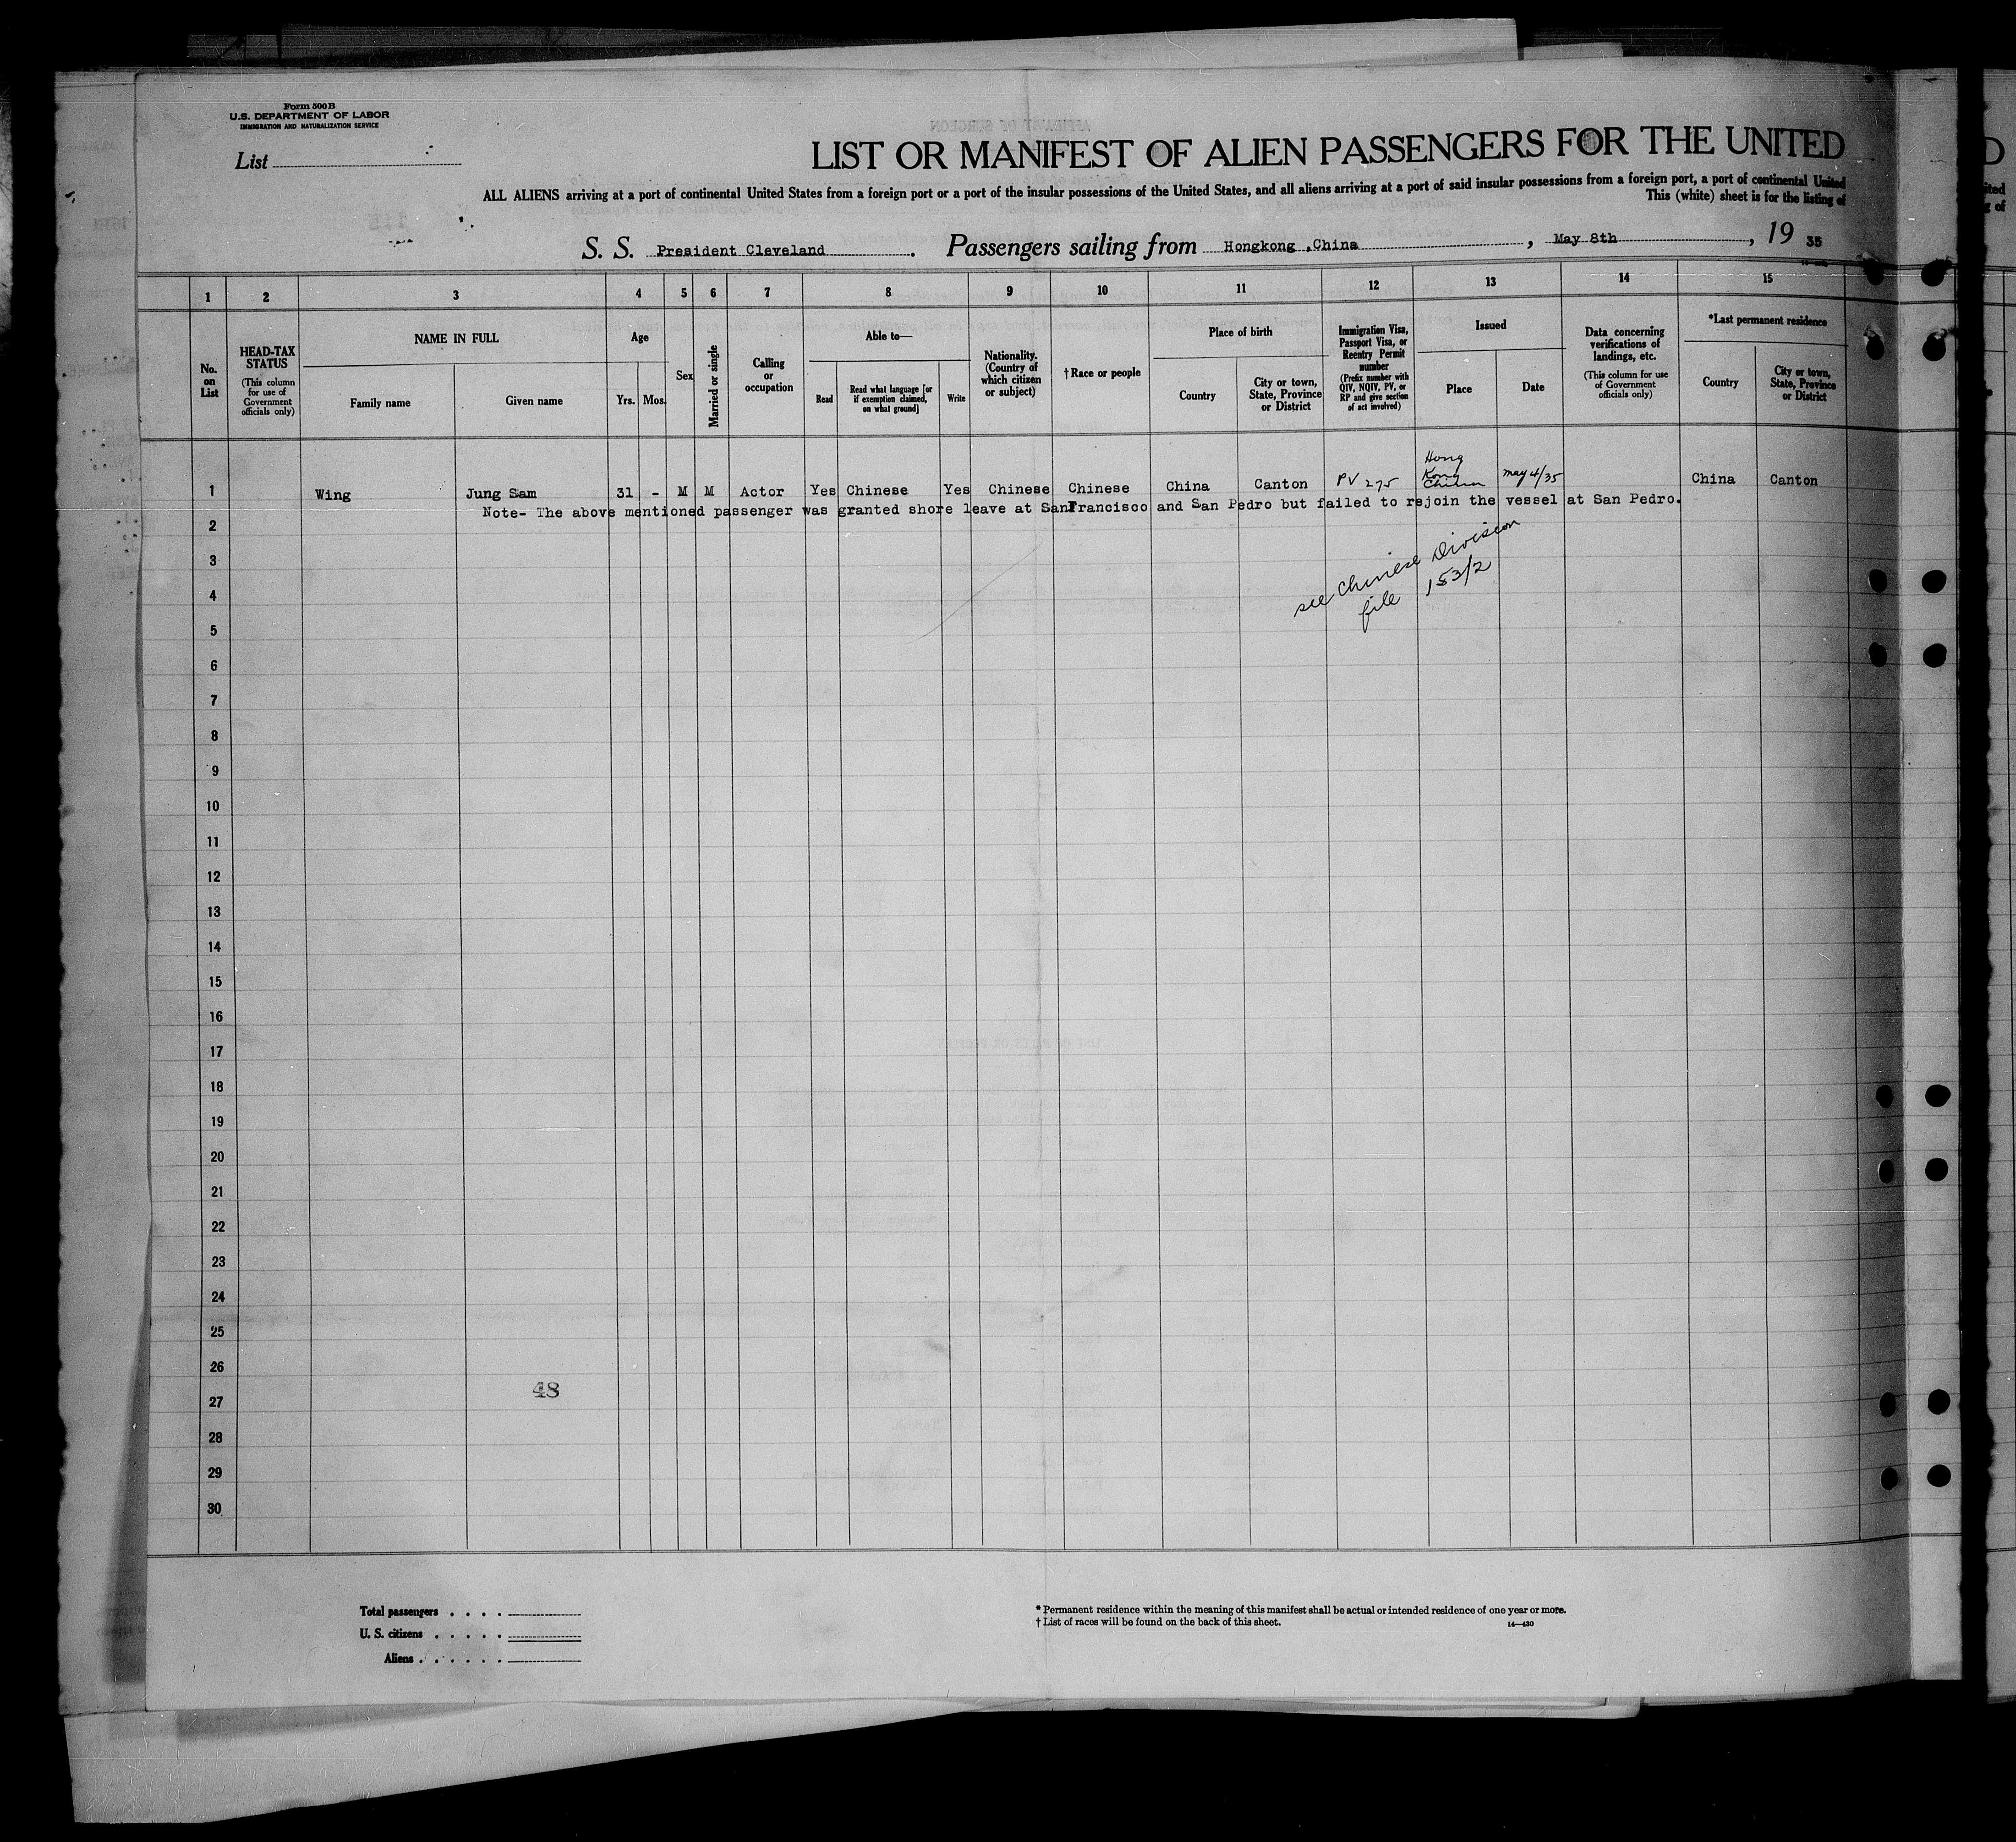 Form 500 B
U.S. DEPARTMENT OF LABOR
IMMIGRATION AND NATURALIZATION SERVICE
List
LIST OR MANIFEST OF ALIEN PASSENGERS FOR THE UNITED
ALL ALIENS arriving at a port of continental United States from a foreign port or a port of the insular possessions of the United States, and all aliens arriving at a port of said insular possessions from a foreign port, a port of continental United
This (white) sheet is for the listing of
S. S. President Cleveland. Passengers sailing from Hongkong ,China, May 8th, 19 35
1 2 3 4 5 6 7 8 9 10 11 12 13 14 15
No. on List
HEAD-TAX STATUS
(This column for use of Government officials only)
NAME IN FULL
Family name
Given name
Age
Yrs. Mos.
Sex
Married or single
Calling or occupation
Able to—
Read
Read what language [or if exemption claimed, on what ground]
Write
Nationality. (Country of which citizen or subject)
†Race or people
Place of birth
Country
City or town, State, Province or District
Immigration Visa, Passport Visa, or Reentry Permit number
(Prefix number with QIV, NQIV, PV, or RP and give section of act involved)
Issued
Place
Date
Data concerning verifications of landings, etc.
(This column for use of Government officials only)
*Last permanent residence
Country
City or town, State, Province or District
1 Wing Jung Sam 31 - M M Actor Yes Chinese Yes Chinese Chinese China Canton PV 275 Hong Kong China may 4/35 China Canton
Note- The above mentioned passenger was granted shore leave at SanFrancisco and San Pedro but failed to rejoin the vessel at San Pedro.
2
3
see Chinese Division
4
file 153/2
5
6
7
8
9
10
11
12
13
14
15
16
17
18
19
20
21
22
23
24
25
26
48
27
28
29
30
Total passengers . . . .
U. S. citizens . . . . .
Aliens . . . . . .
* Permanent residence within the meaning of this manifest shall be actual or intended residence of one year or more.
† List of races will be found on the back of this sheet.
14—430